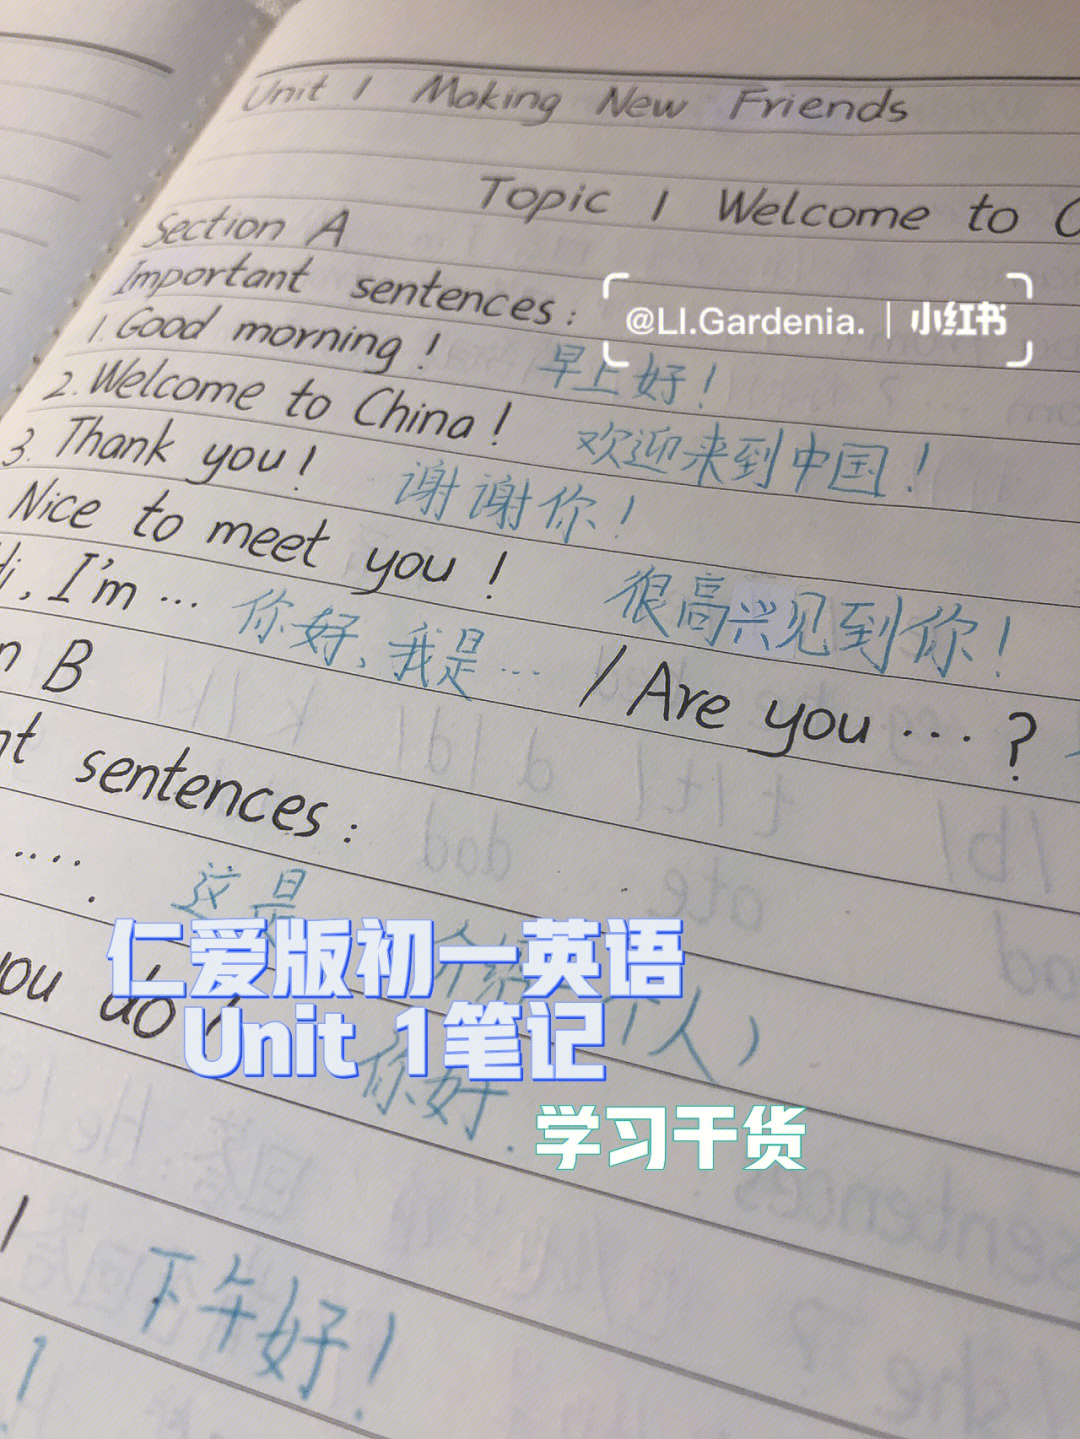 Unit 1 Making New Friends
Topic 1 Welcome to
Section A
Important sentences:
@LI.Gardenia. | 小红书
1. Good morning! 早上好!
2. Welcome to China! 欢迎来到中国!
3. Thank you! 谢谢你!
Nice to meet you! 很高兴见到你!
, I'm ... 你好,我是... / Are you ...?
B
sentences:
.... 这是
个人)
you do
你好.
仁爱版初一英语
Unit 1笔记
学习干货
下午好!